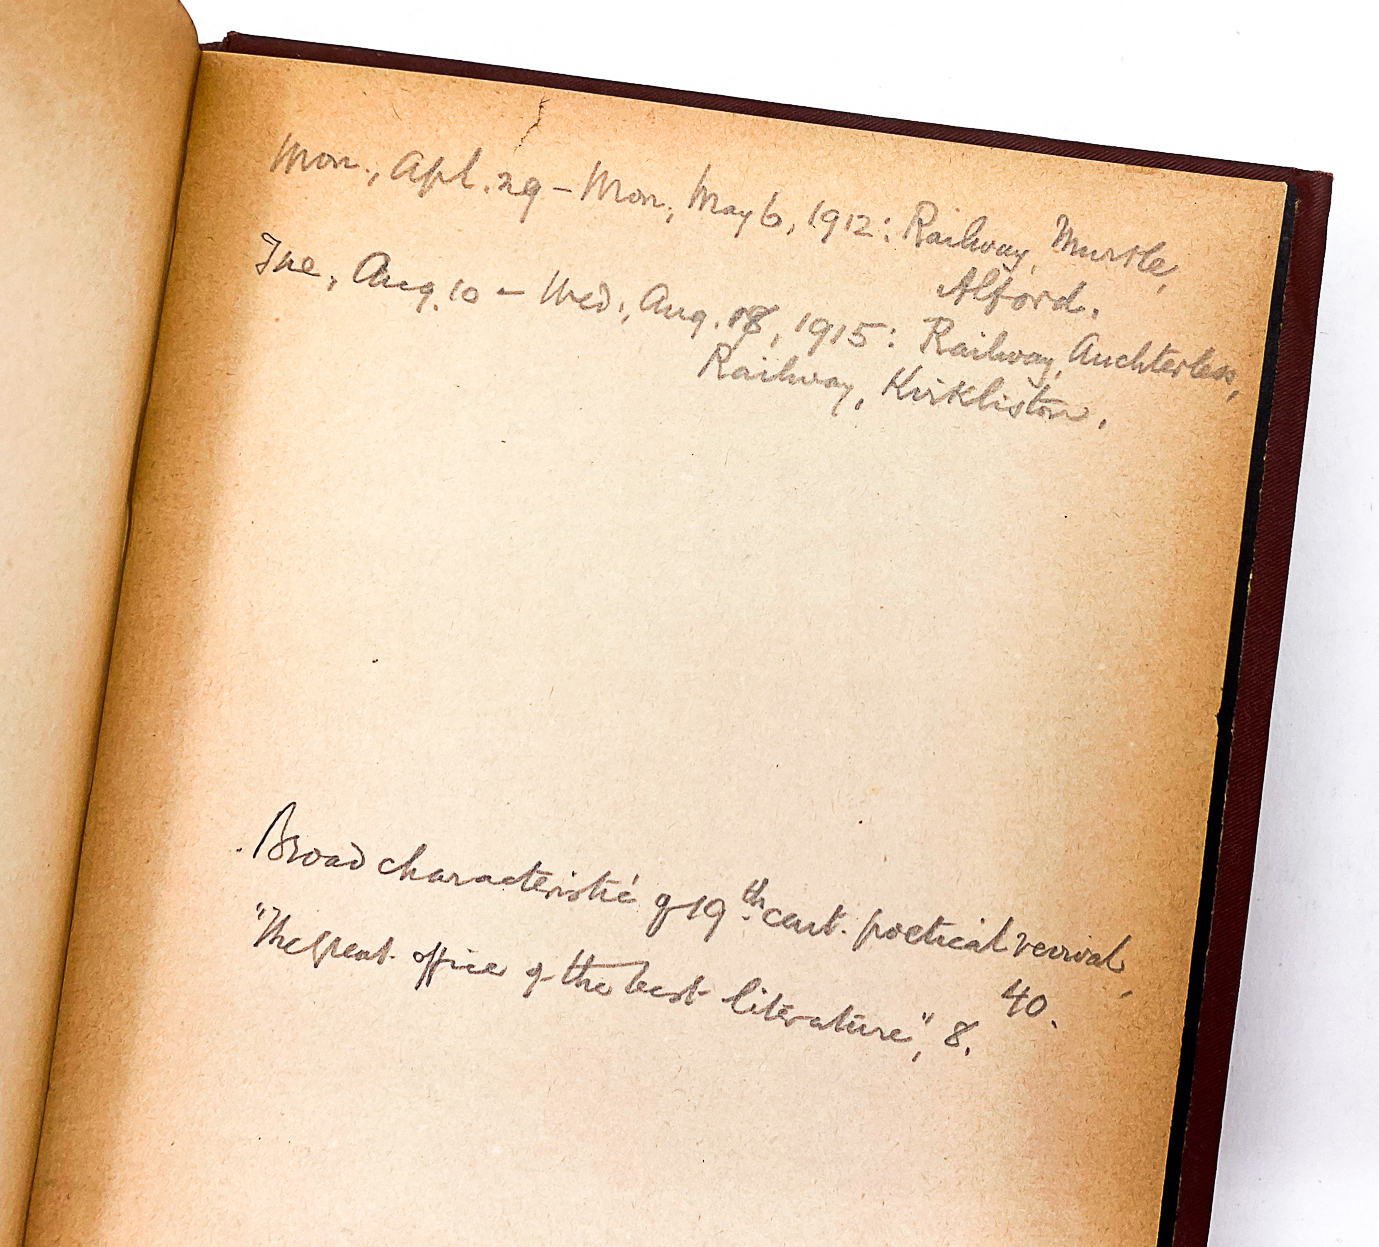 Mon., Apl. 29 – Mon., May 6, 1912: Railway, Murtle,
Alford.
Tue., Aug. 10 – Wed., Aug. 18, 1915: Railway, Auchterless,
Railway, Kirkliston.
Broad characteristic of 19th cent. poetical revival,
40.
"The great office of the best literature", 8.